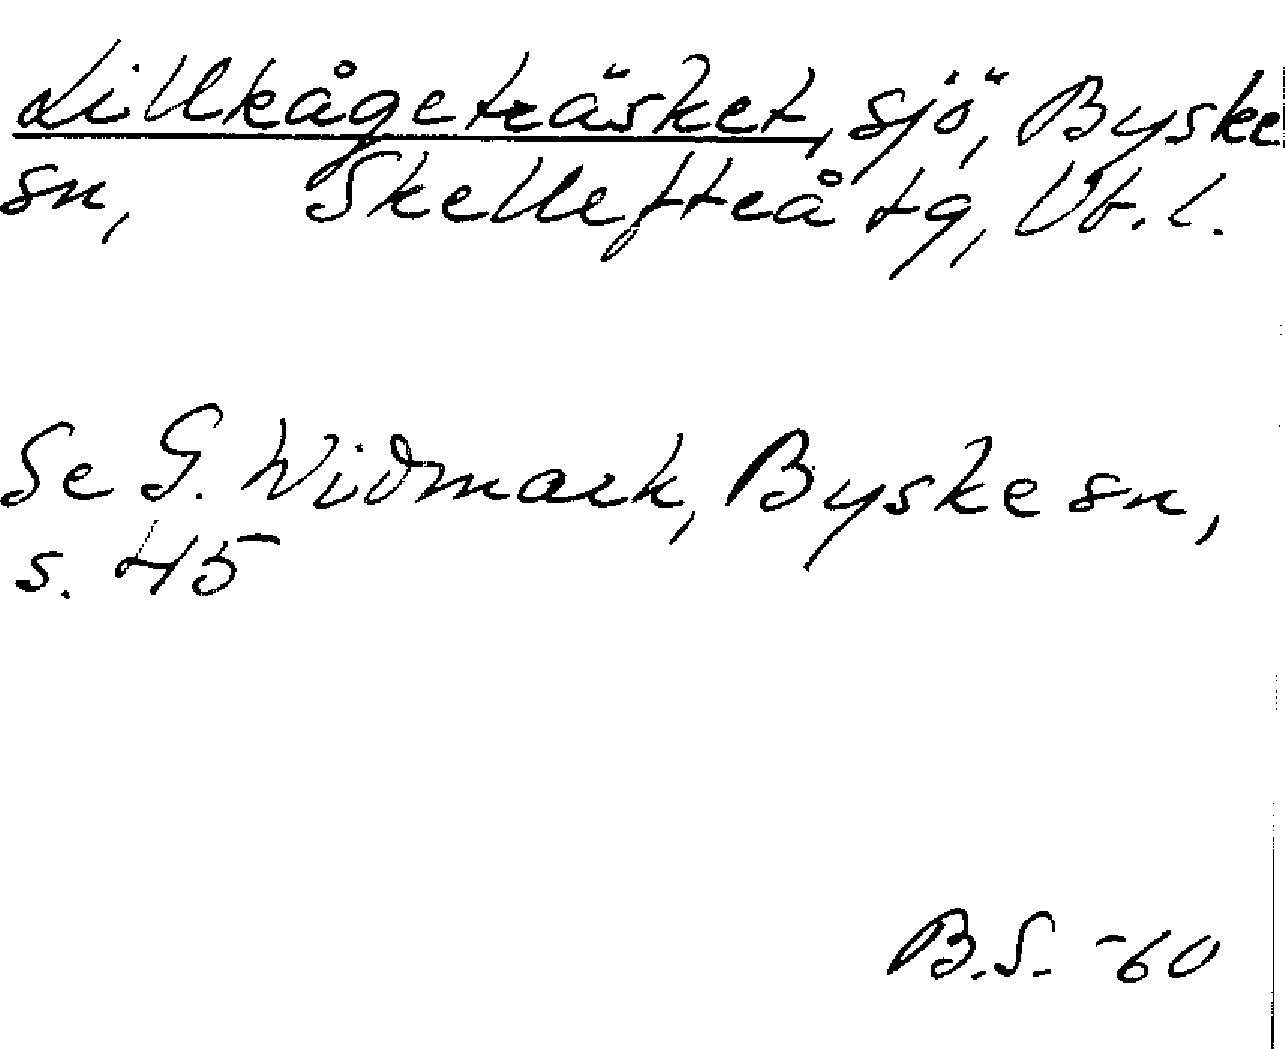 Lillkågeträsket, sjö, Byske
sn, Skellefteå tg, Vb. l.
Se G. Widmark, Byske sn,
s. 45
B.S. -60